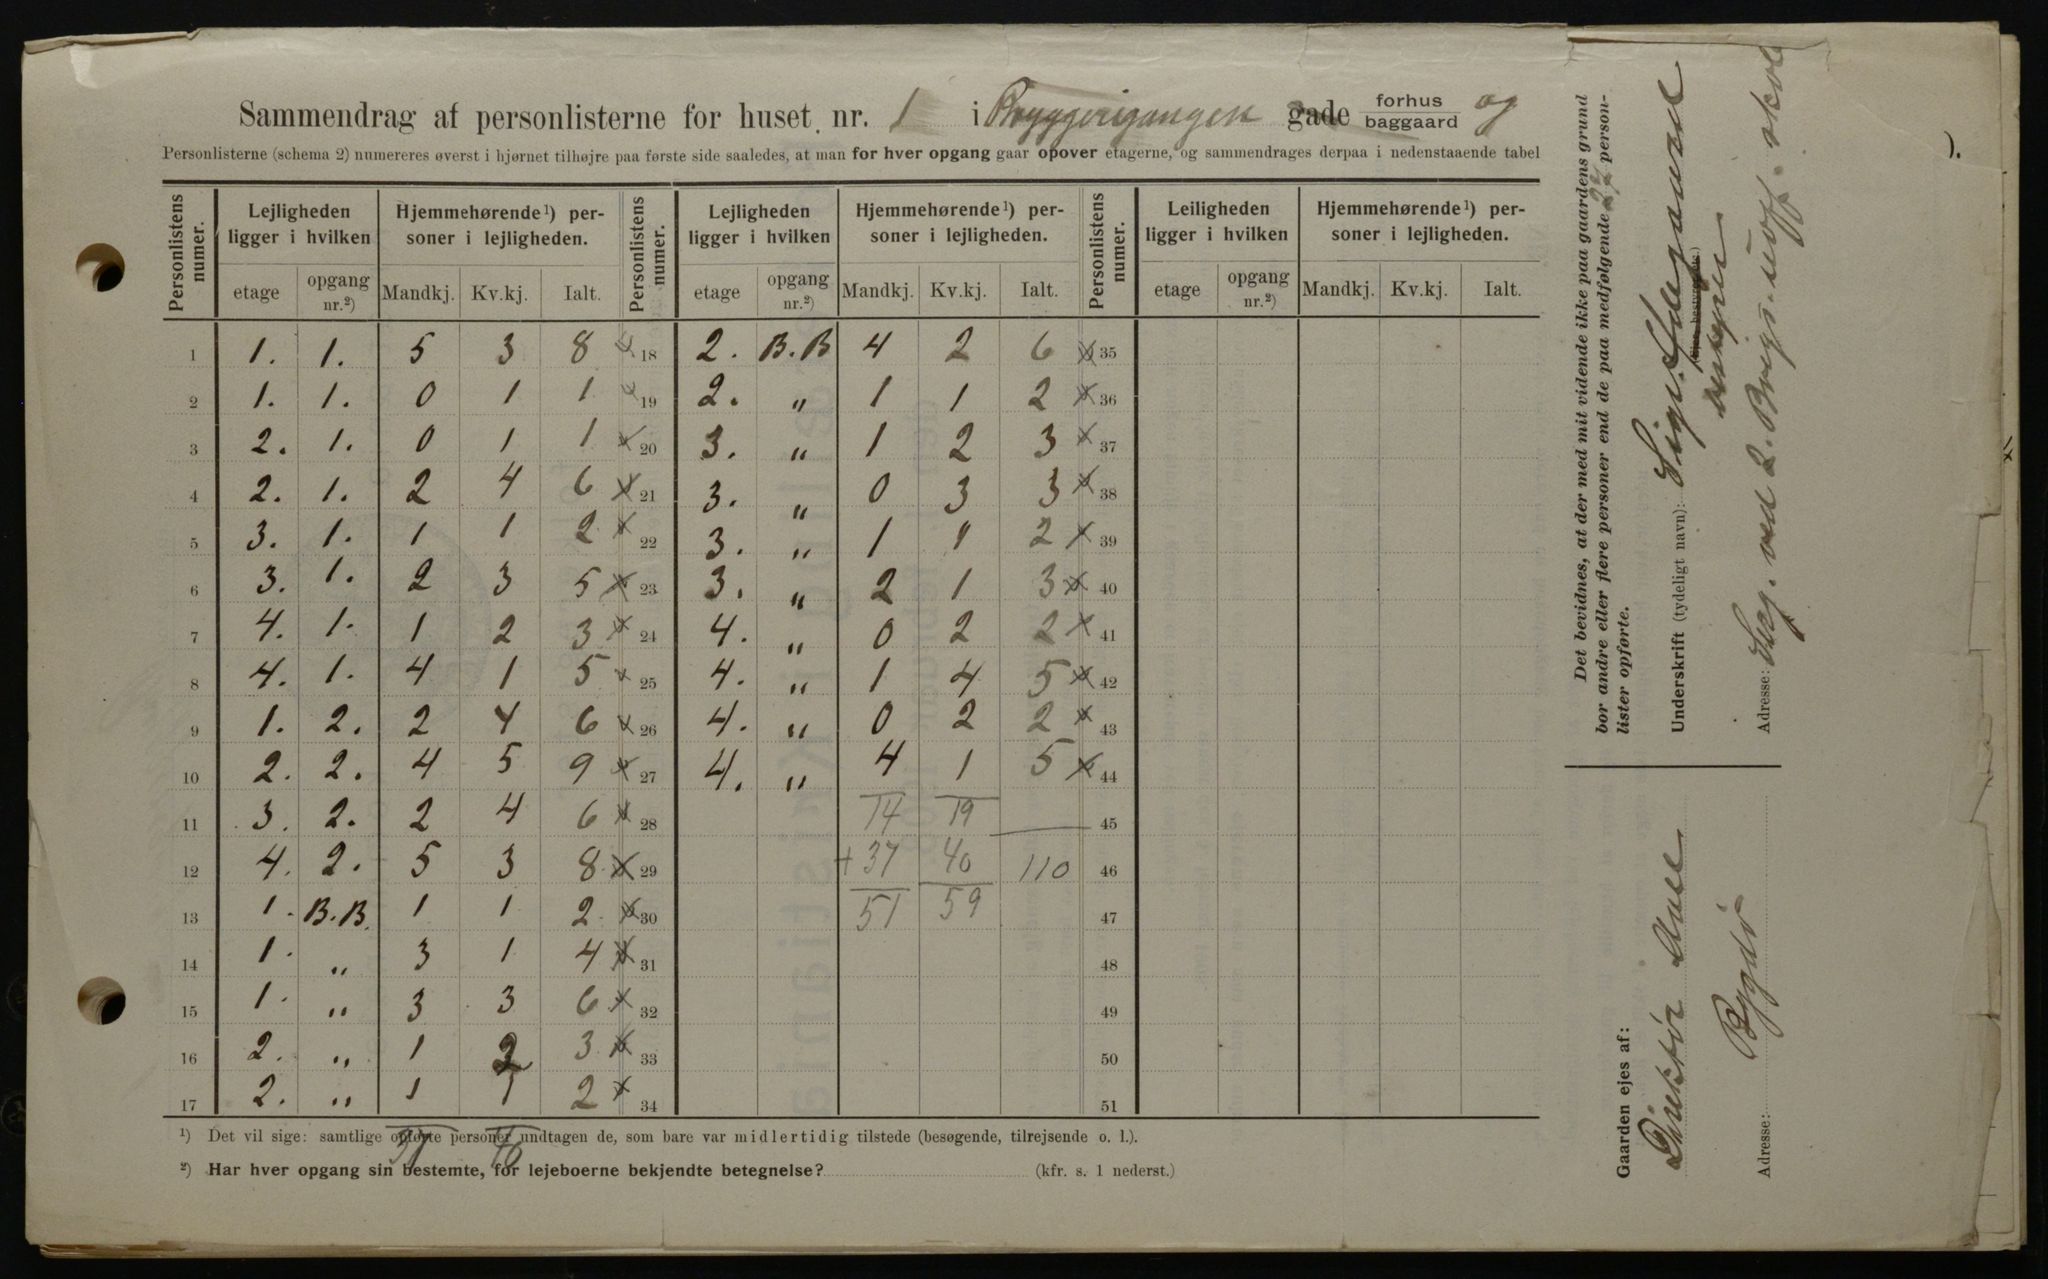 Sammendrag af personlisterne for huset nr. 1 i Bryggerigangen gade forhus baggaard og
Personlisterne (schema 2) numereres øverst i hjørnet tilhøjre paa første side saaledes, at man for hver opgang gaar opover etagerne, og sammendrages derpaa i nedenstaaende tabel
Personlistens numer. Lejligheden ligger i hvilken Hjemmehørende¹) personer i lejligheden. Personlistens numer. Lejligheden ligger i hvilken Hjemmehørende¹) personer i lejligheden. Personlistens numer. Leiligheden ligger i hvilken Hjemmehørende¹) personer i lejligheden.
etage opgang nr.²) Mandkj. Kv.kj. Ialt. etage opgang nr.²) Mandkj. Kv.kj. Ialt. etage opgang nr.²) Mandkj. Kv.kj. Ialt.
1 1. 1. 5 3 8 18 2. B.B 4 2 6 35
2 1. 1. 0 1 1 19 2. " 1 1 2 36
3 2. 1. 0 1 1 20 3. " 1 2 3 37
4 2. 1. 2 4 6 21 3. " 0 3 3 38
5 3. 1. 1 1 2 22 3. " 1 1 2 39
6 3. 1. 2 3 5 23 3. " 2 1 3 40
7 4. 1. 1 2 3 24 4. " 0 2 2 41
8 4. 1. 4 1 5 25 4. " 1 4 5 42
9 1. 2. 2 4 6 26 4. " 0 2 2 43
10 2. 2. 4 5 9 27 4. " 4 1 5 44
11 3. 2. 2 4 6 28 14 19 45
12 4. 2. 5 3 8 29 + 37 40 110 46
13 1. B.B. 1 1 2 30 51 59 47
14 1. " 3 1 4 31 48
15 1. " 3 3 6 32 49
16 2. " 1 2 3 33 50
17 2. " 1 1 2 34 51
37 40
¹) Det vil sige: samtlige opførte personer undtagen de, som bare var midlertidig tilstede (besøgende, tilrejsende o. l.).
²) Har hver opgang sin bestemte, for lejeboerne bekjendte betegnelse? (kfr. s. 1 nederst.)
Det bevidnes, at der med mit vidende ikke paa gaardens grund
bor andre eller flere personer end de paa medfølgende 27 person-
lister opførte.
Underskrift (tydeligt navn): Sigv.
Adresse: Serg. ved 2. Brigs. uoff. skole
Gaarden ejes af:
Direktør
Adresse: Bygdø